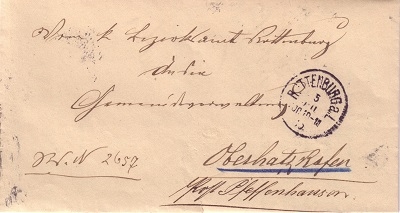 Vom k. Bezirksamt Rottenburg
An die
Gemeindeverwaltung
ROTTENBURG a.L.
5
Nr. N 2657
Oberhatzkofen
Post Pfeffenhausen.